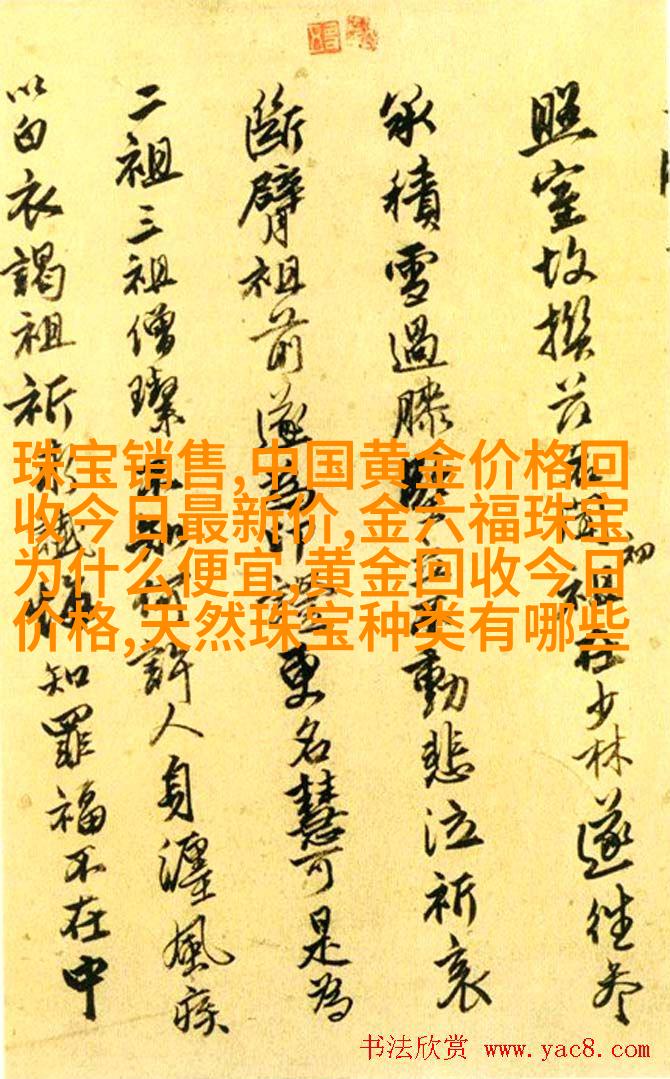 照室故撰
少林遂往参
初
承積雪過膝
動悲泣祈哀
斷臂祖前遂為
更名慧可是為
二祖三祖僧璨
許人身纏風疾
以白衣謁祖祈
知罪福不在中
珠宝销售,中国黄金价格回
收今日最新价,金六福珠宝
为什么便宜,黄金回收今日
价格,天然珠宝种类有哪些
书法欣赏 www.yac8.com